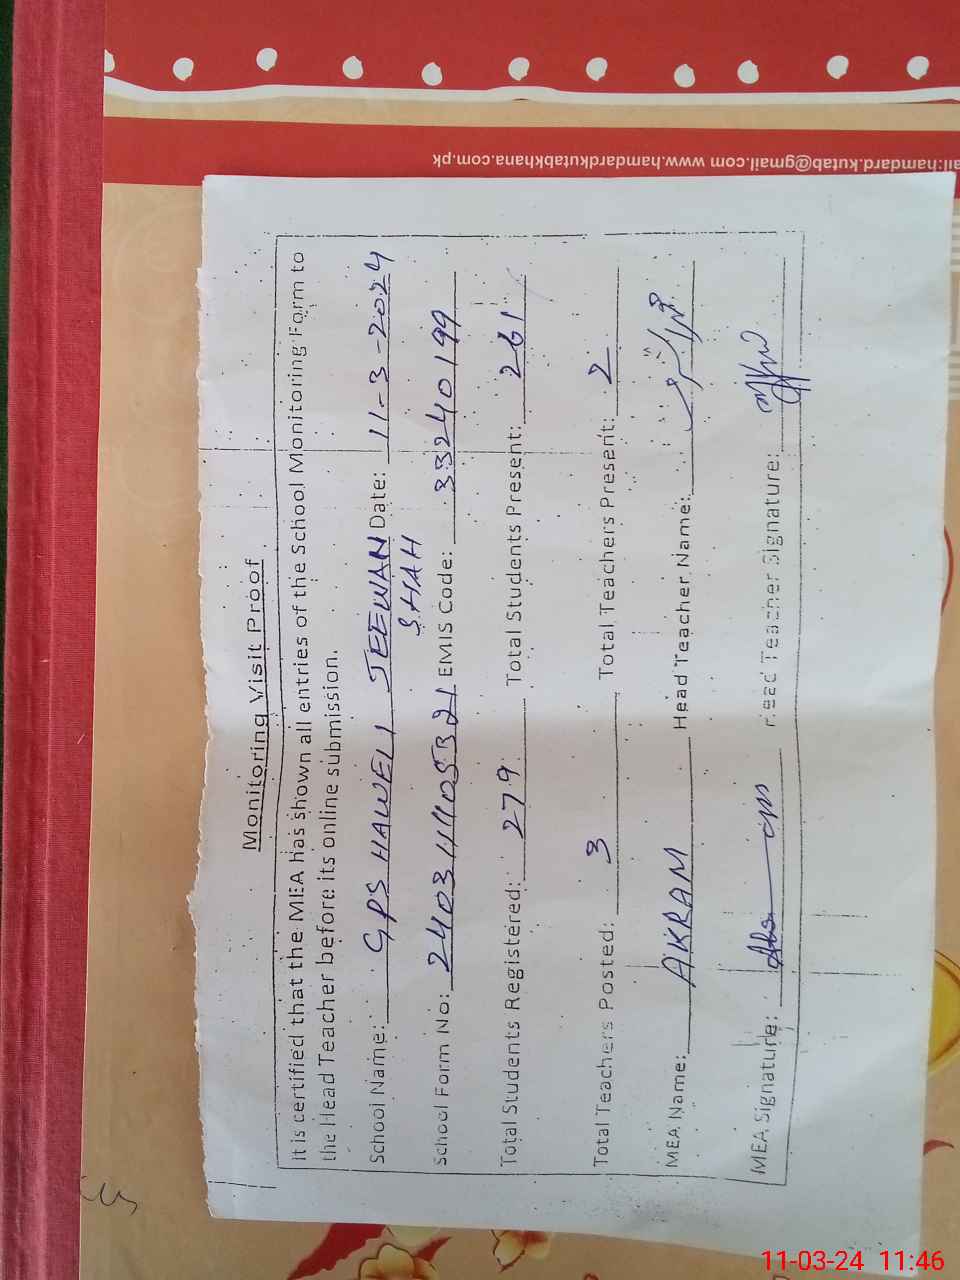 ail:hamdard.kutab@gmail.com www.hamdardkutabkhana.com.pk
Monitoring Visit Proof
It is certified that the MEA has shown all entries of the School Monitoring Form to
the Head Teacher before its online submission.
School Name: GPS HAWELI JEEWAN Date: 11-3-2024
SHAH
School Form No: EMIS Code: 33240199
Total Students Registered: 279 Total Students Present: 261
Total Teachers Posted: 3 Total Teachers Present: 2
MEA Name: AKRAM Head Teacher Name:
MEA Signature: Head Teacher Signature:
11-03-24 11:46